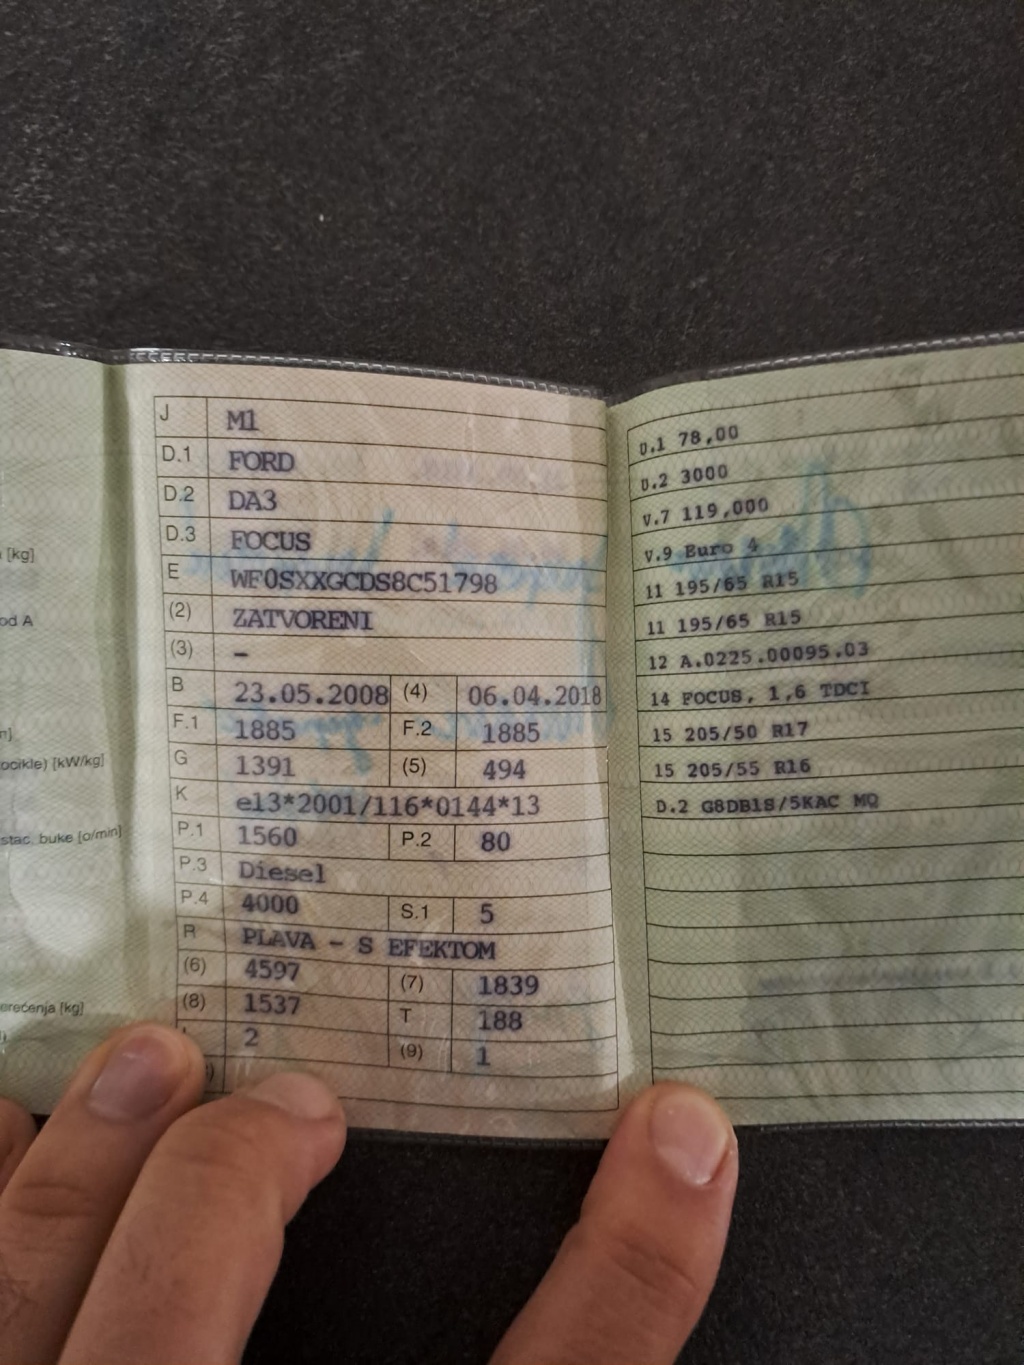 [kg]
od A
ocikle) [kW/kg]
stac. buke [o/min]
[kg]
J M1
D.1 FORD
D.2 DA3
D.3 FOCUS
E WF0SXXGCDS8C51798
(2) ZATVORENI
(3) –
B 23.05.2008 (4) 06.04.2018
F.1 1885 F.2 1885
G 1391 (5) 494
K e13*2001/116*0144*13
P.1 1560 P.2 80
P.3 Diesel
P.4 4000 S.1 5
R PLAVA - S EFEKTOM
(6) 4597 (7) 1839
(8) 1537 T 188
2 (9) 1
U.1 78,00
U.2 3000
V.7 119,000
V.9 Euro 4
11 195/65 R15
11 195/65 R15
12 A.0225.00095.03
14 FOCUS, 1,6 TDCI
15 205/50 R17
15 205/55 R16
D.2 G8DB1S/5KAC MQ